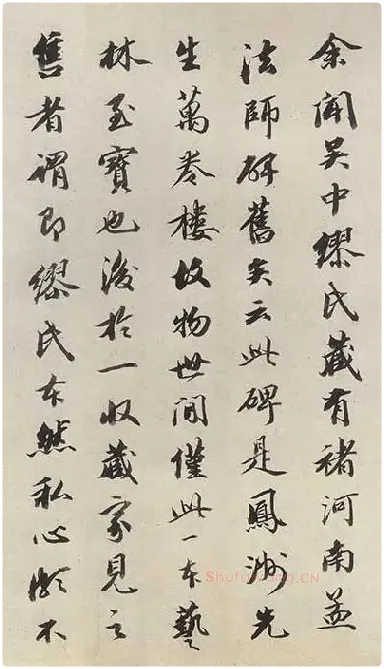 余聞吳中繆氏藏有褚河南孟
法師碑舊矣云此碑是鳳洲先
生萬卷樓故物世間僅此一本藝
林至寶也後於一收藏家見之
售者謂即繆氏本然私心頗不
Shufawang.CN